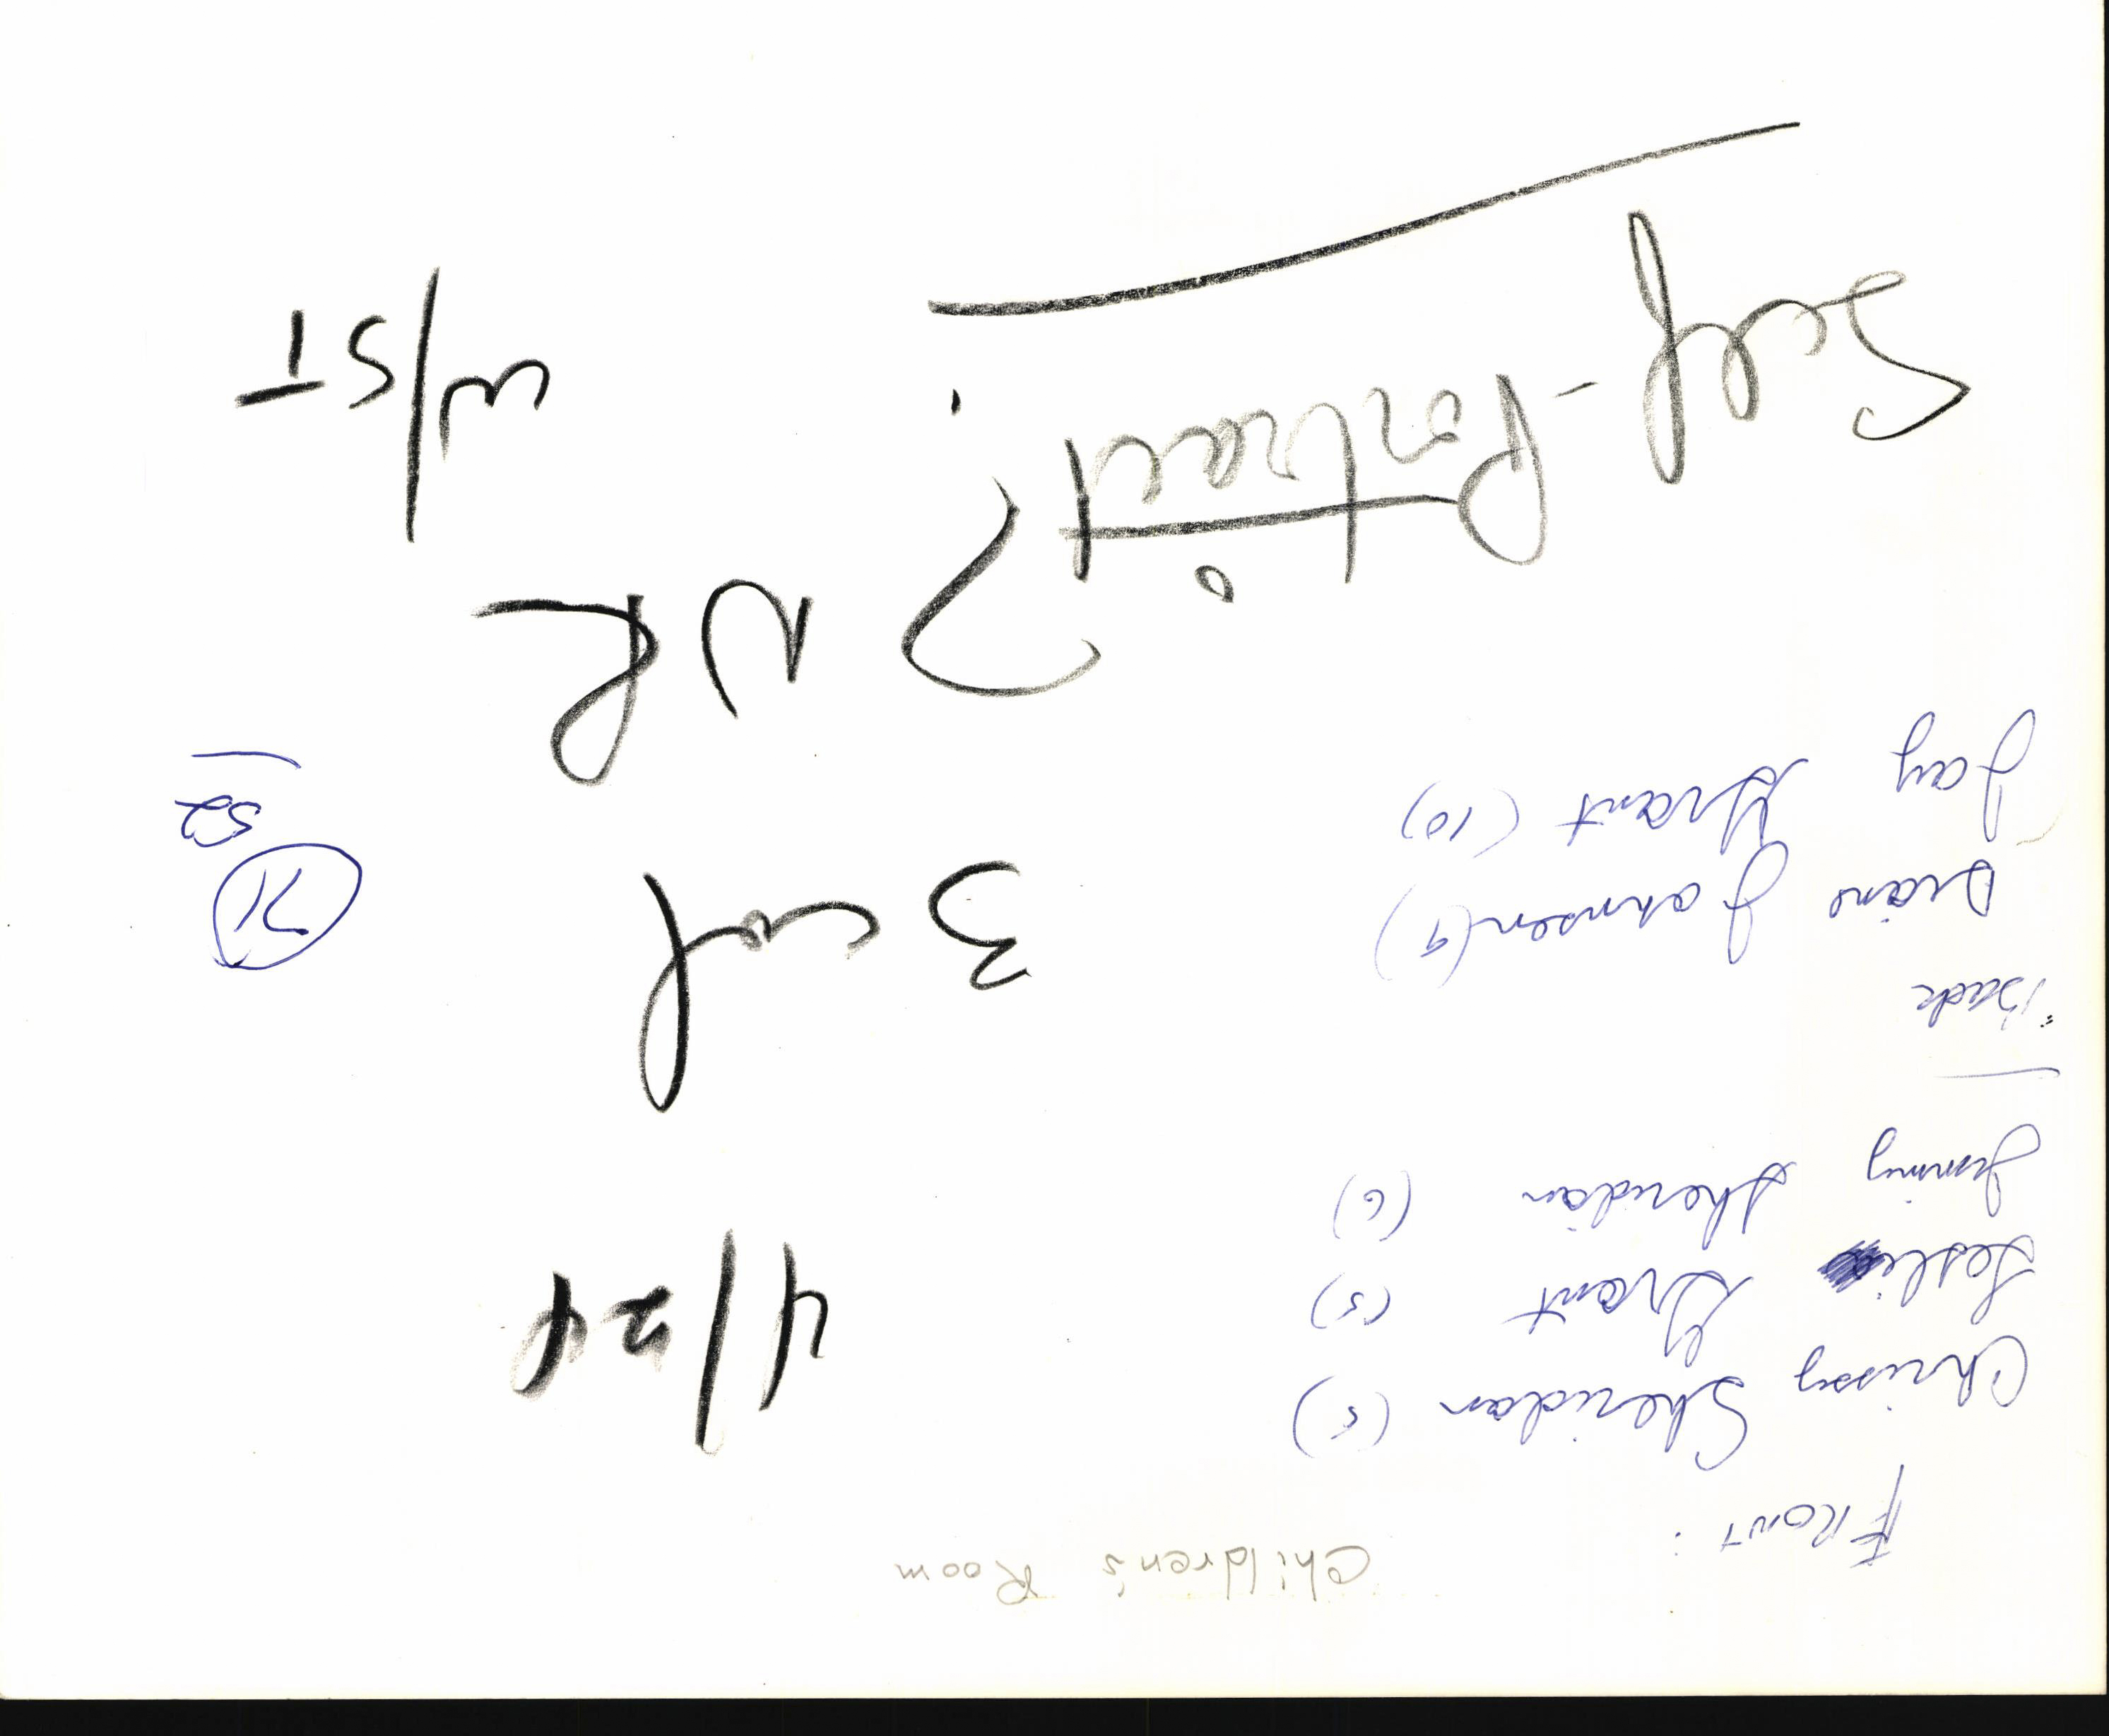 Children's Room
Front:
Chrissy Sheridan (5)
Leslie Grant (5)
Jimmy Sheridan (6)
Back
Diane Johnsen (9)
Jay Grant (10)
4/24
3 col
52
NR
Self-Portrait?
w/ST